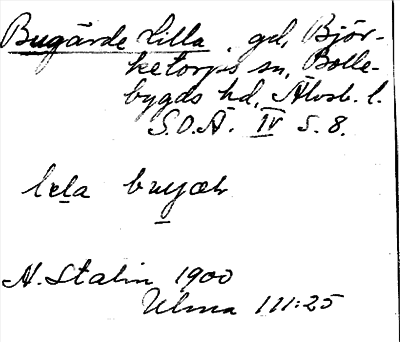 Bugärde Lilla, gd, Björ-
ketorps sn, Bolle-
bygds hd, Älvsb. l.
S.O.Ä. IV S. 8.
lela
A. Stalin 1900
Ulma 111:25